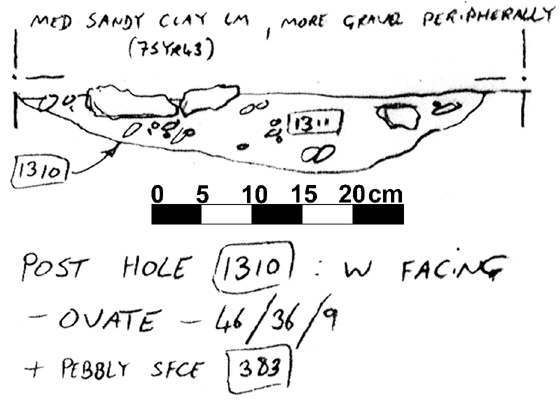 MED SANDY CLAY LM, MORE GRAVEL PERIPHERALLY
(75YR43)
1311
1310
0 5 10 15 20 cm
POST HOLE 1310 : W FACING
- OVATE - 46/36/9
+ PEBBLY SFCE 383